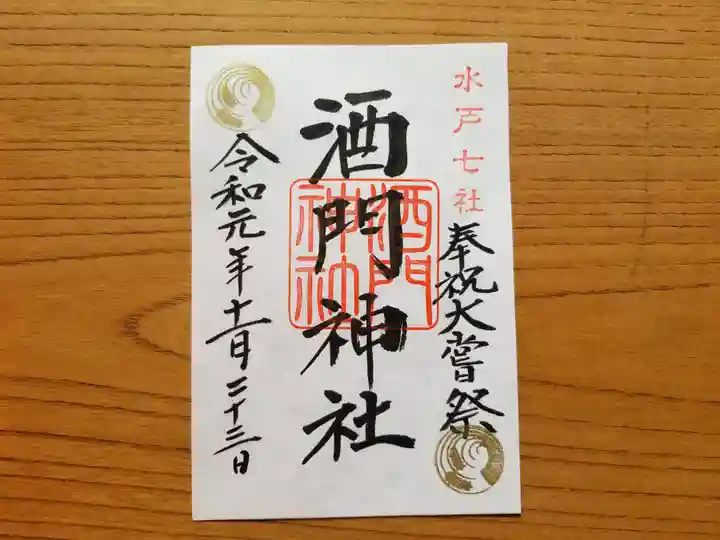 水戸七社
奉祝大嘗祭
酒門神社
酒門
神社
令和元年十一月二十三日